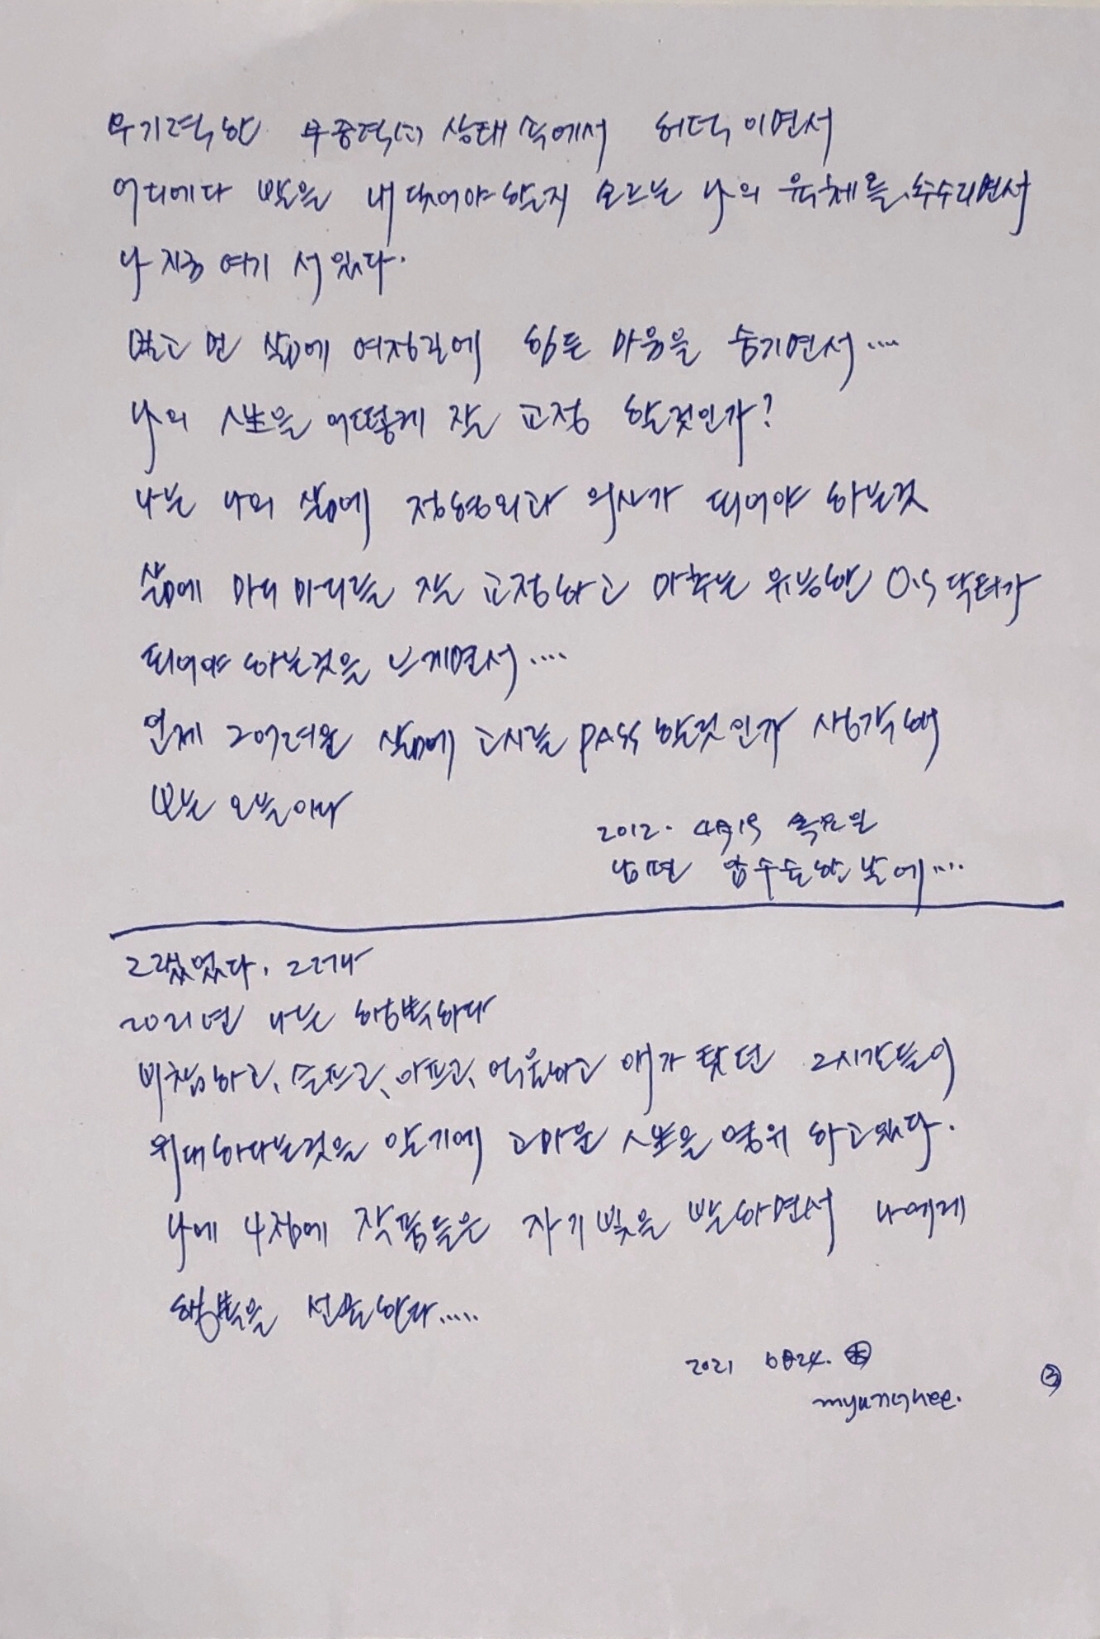 무기력한 무중력(力) 상태 속에서 허덕이면서
어디에다 발을 내 딛어야 할지 모르는 나의 육체를 추수리면서
나 지금 여기 서 있다.
멀고 먼 삶에 여정길에 힘든 마음을 숨기면서....
나의 人生을 어떻게 잘 교정 할것인가?
나는 나의 삶에 정형외과 의사가 되어야 하는것
삶에 마디 마디를 잘 교정하고 마추는 유능한 O.S 닥터가
되어야 하는것을 느끼면서....
언제 그어려운 삶에 고시를 PASS 할것인가 생각해
보는 오늘이다
2012. 4月19 목요일
남편 암수술한 날에....
그랬었다. 그러나
2021년 나는 행복하다
비참하고, 슬프고, 아프고, 억울하고 애가 탔던 그시간들이
위대하다는것을 알기에 고마운 人生을 영위 하고있다.
나에 4점에 작품들은 자기빛을 발하면서 나에게
행복을 선물한다.....
2021 6月24. 木
myunghee.
③